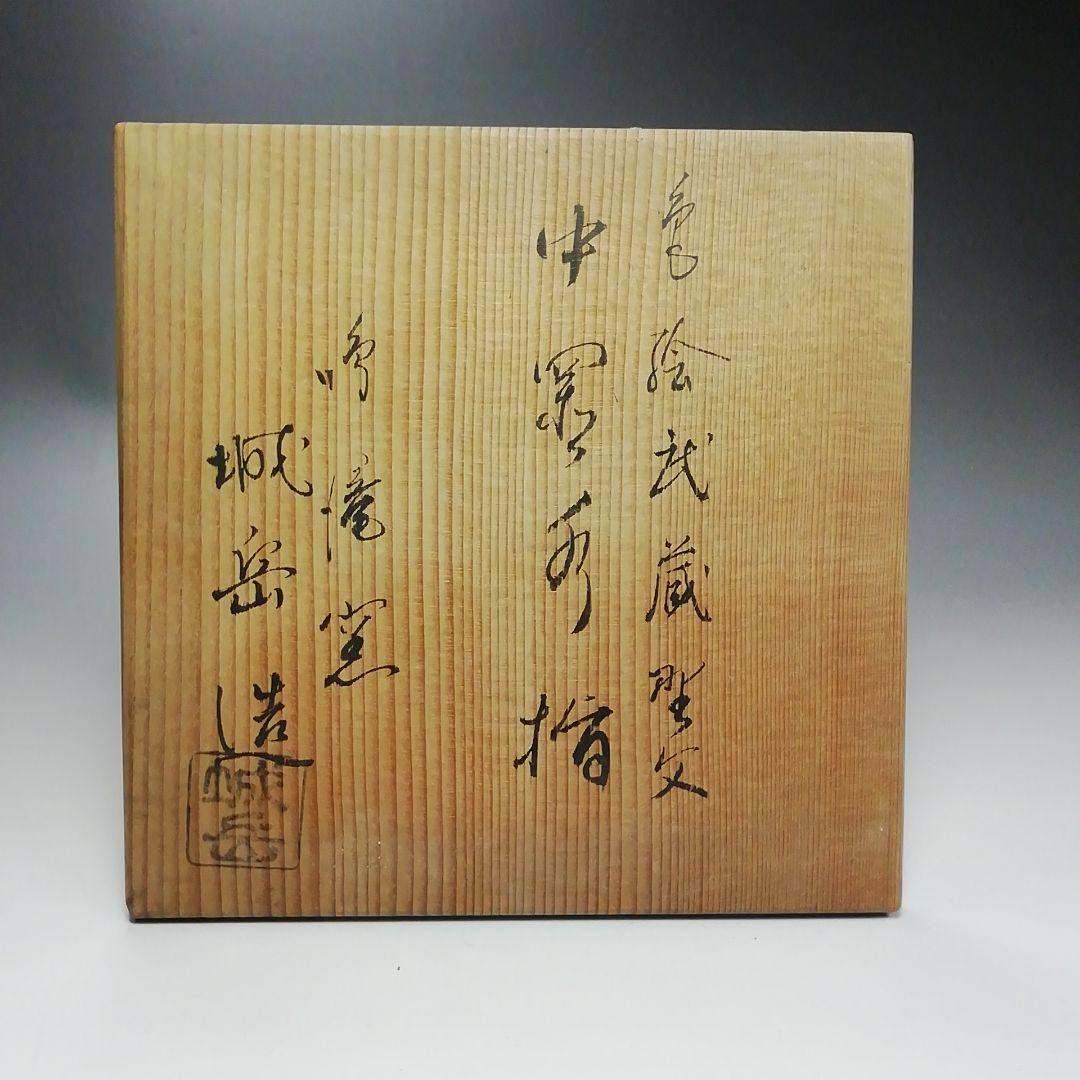 色絵武蔵野文
中置水指
鳴滝窯
城岳造
城岳